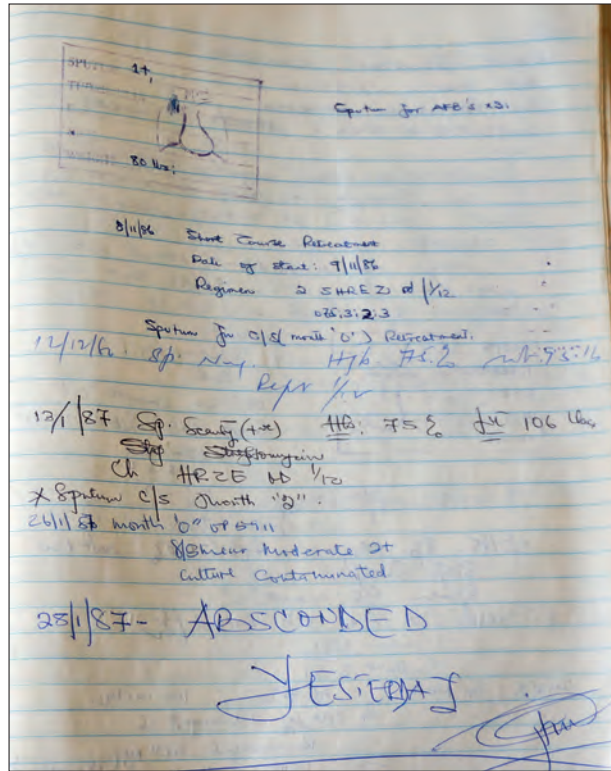 1+,
Sputum for AFB's x3:
80 lbs;
8/11/86 Short Course Retreatment
Date of start: 9/11/86
Regimen 2 SHREZ od 1/12
3; 2; 3
Sputum for C/S (month '0') Retreatment.
12/12/86: Sp: Neg. Hgb. 75% wt: 95: lb
Repr 1/12
13/1/87 Sp. Scanty (+ve) Hb: 75% wt 106 lbs
Stop Streptomycin
Ch HRZE OD 1/12
* Sputum C/S month "2".
26/1/87 month "0" OP 8911
Smear Moderate 2+
Culture Contaminated
28/1/87- ABSCONDED
YESTERDAY